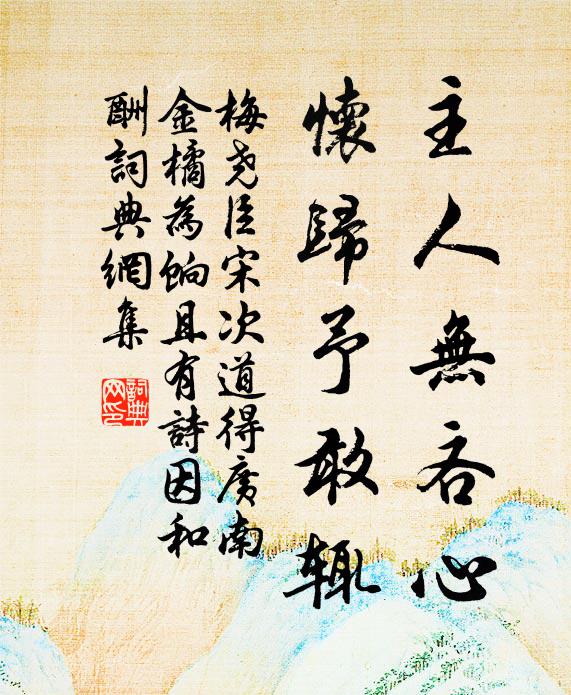 主人無吝心
懷歸予敢輒
梅堯臣宋次道得廣南
金橘為餉且有詩因和
酬詞典網集
詞典
网印